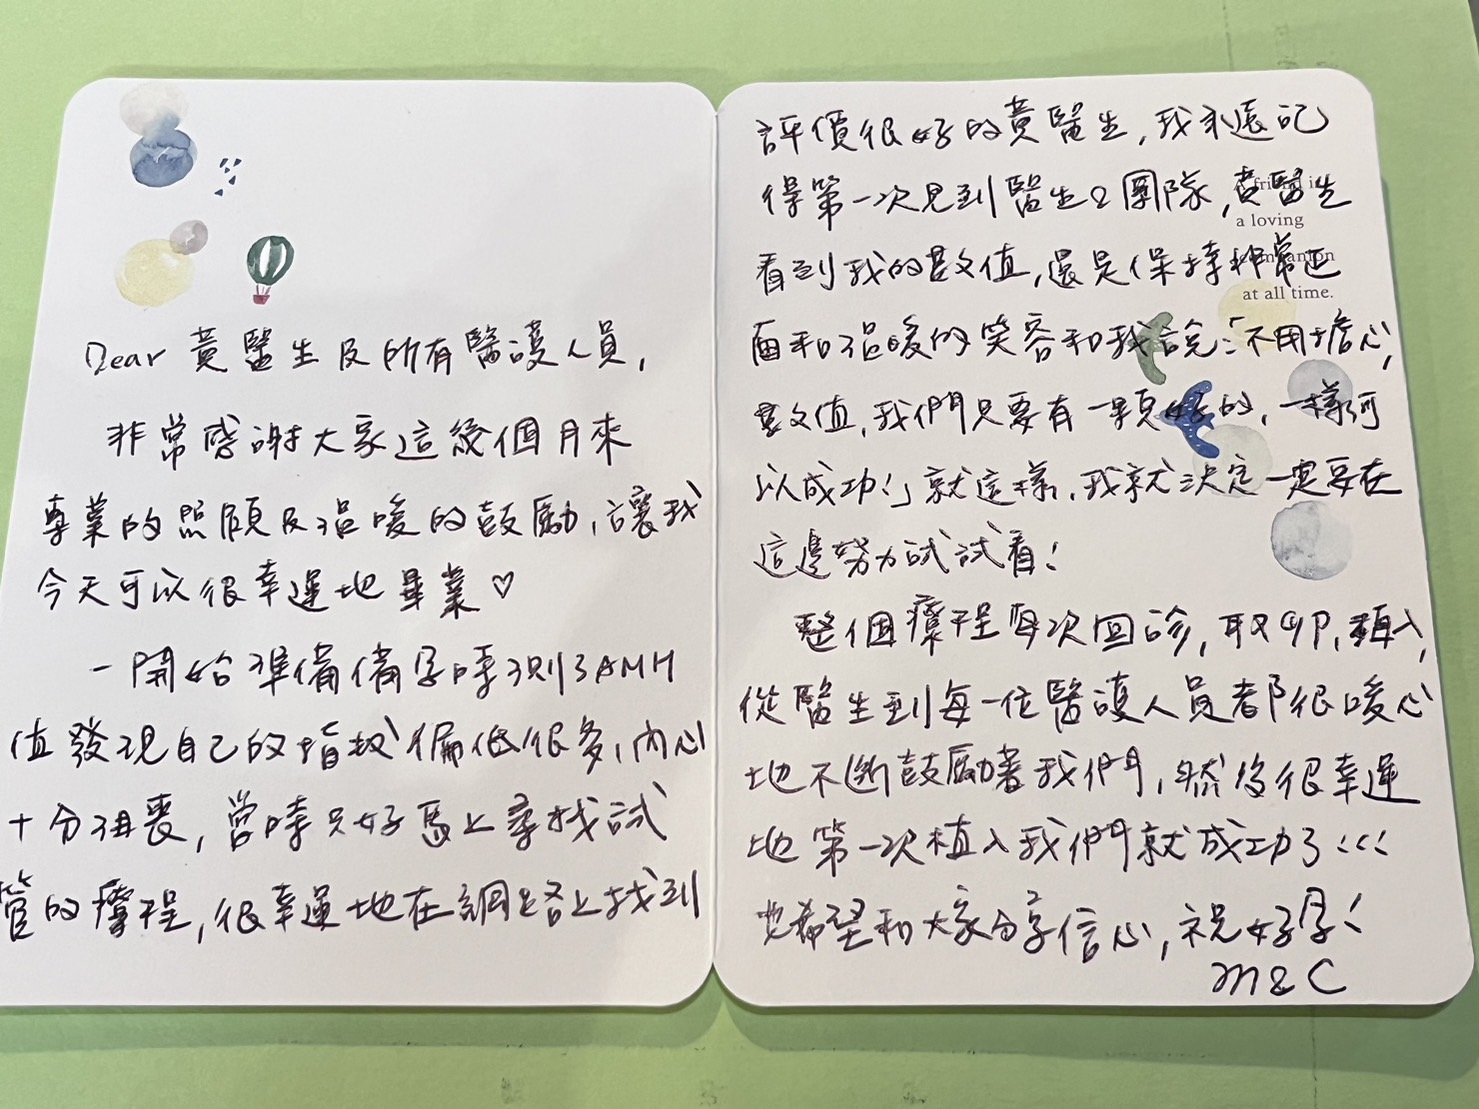 Dear 黃醫生及所有醫護人員,
非常感謝大家這幾個月來
專業的照顧及溫暖的鼓勵,讓我
今天可以很幸運地畢業♡
一開始準備備孕時測了AMH
值發現自己的指數偏低很多,內心
十分沮喪,當時只好馬上尋找試
管的療程,很幸運地在網路上找到
評價很好的黃醫生,我永遠記
得第一次見到醫生&團隊,黃醫生
看到我的數值,還是保持非常正
面和溫暖的笑容和我說:「不用擔心
數值,我們只要有一顆好的,一樣可
以成功!」就這樣,我就決定一定要在
這邊努力試試看!
整個療程每次回診,取卵,植入,
從醫生到每一位醫護人員都很暖心
地不斷鼓勵著我們,然後很幸運
地第一次植入我們就成功了!!!
也希望和大家分享信心,祝好孕!
M&C
A friend is
a loving
companion
at all time.